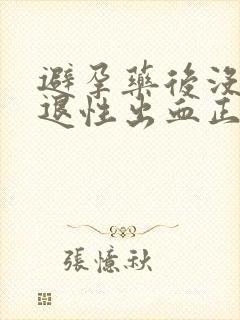 避孕藥後沒
退性出血正
張憶秋